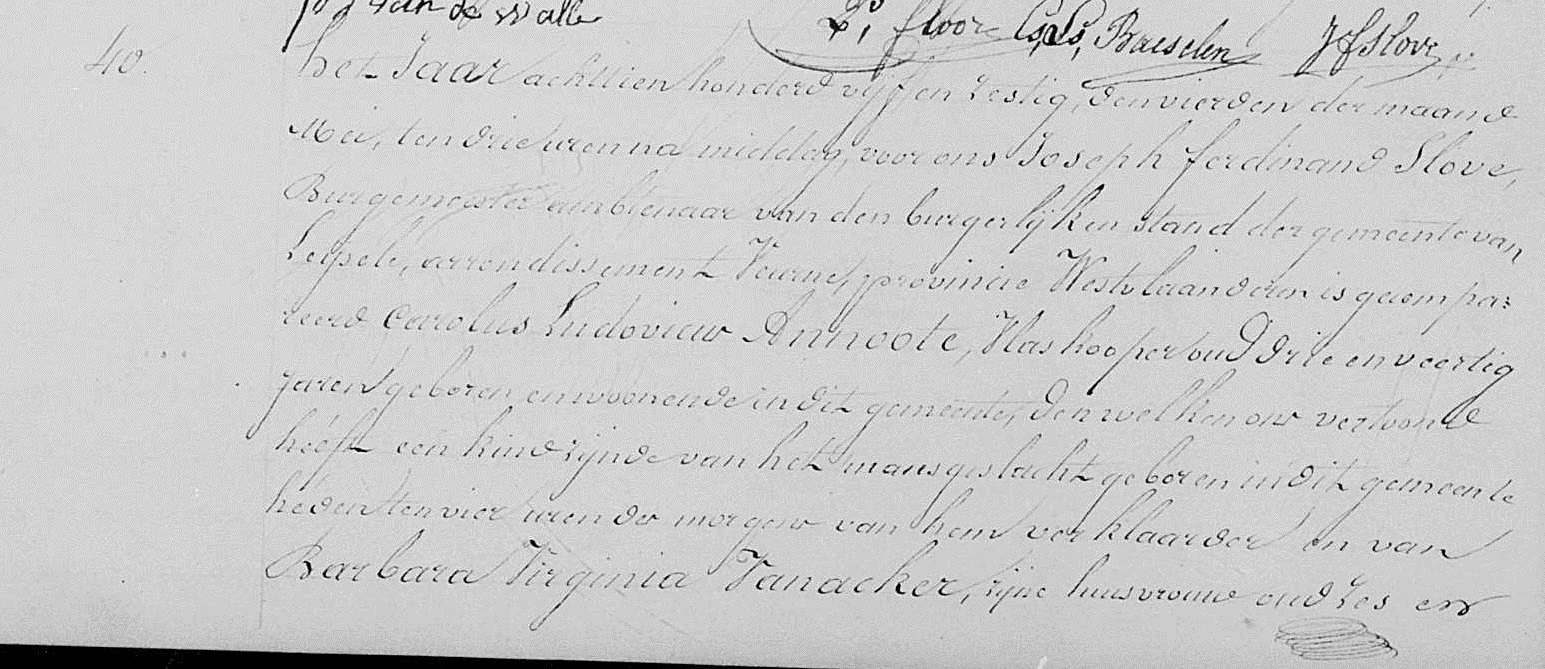 Van de Walle
P. floor Cs. Ls. Baeselen J f Slove
40.
het Jaar achttien honderd vijf en zestig, den vierden der maand
Mei, ten drie uren na middag, voor ons Joseph ferdinand Slove,
Burgemeester ambtenaar van den burgerlijken stand der gemeente van
Leysele, arrondissement Veurne, provincie Westvlaanderen is gecompa=
reerd Carolus Ludovicus Annoote, Vlaskooper oud drie en veertig
jaren geboren en woonende in dit gemeente, den welken ons vertoond
heeft een kind zijnde van het mansgeslacht geboren in dit gemeente
heden ten vier uren des morgens van hem verklaarder en van
Barbara Virginia Vanacker, zijne huisvrouw oud zes en